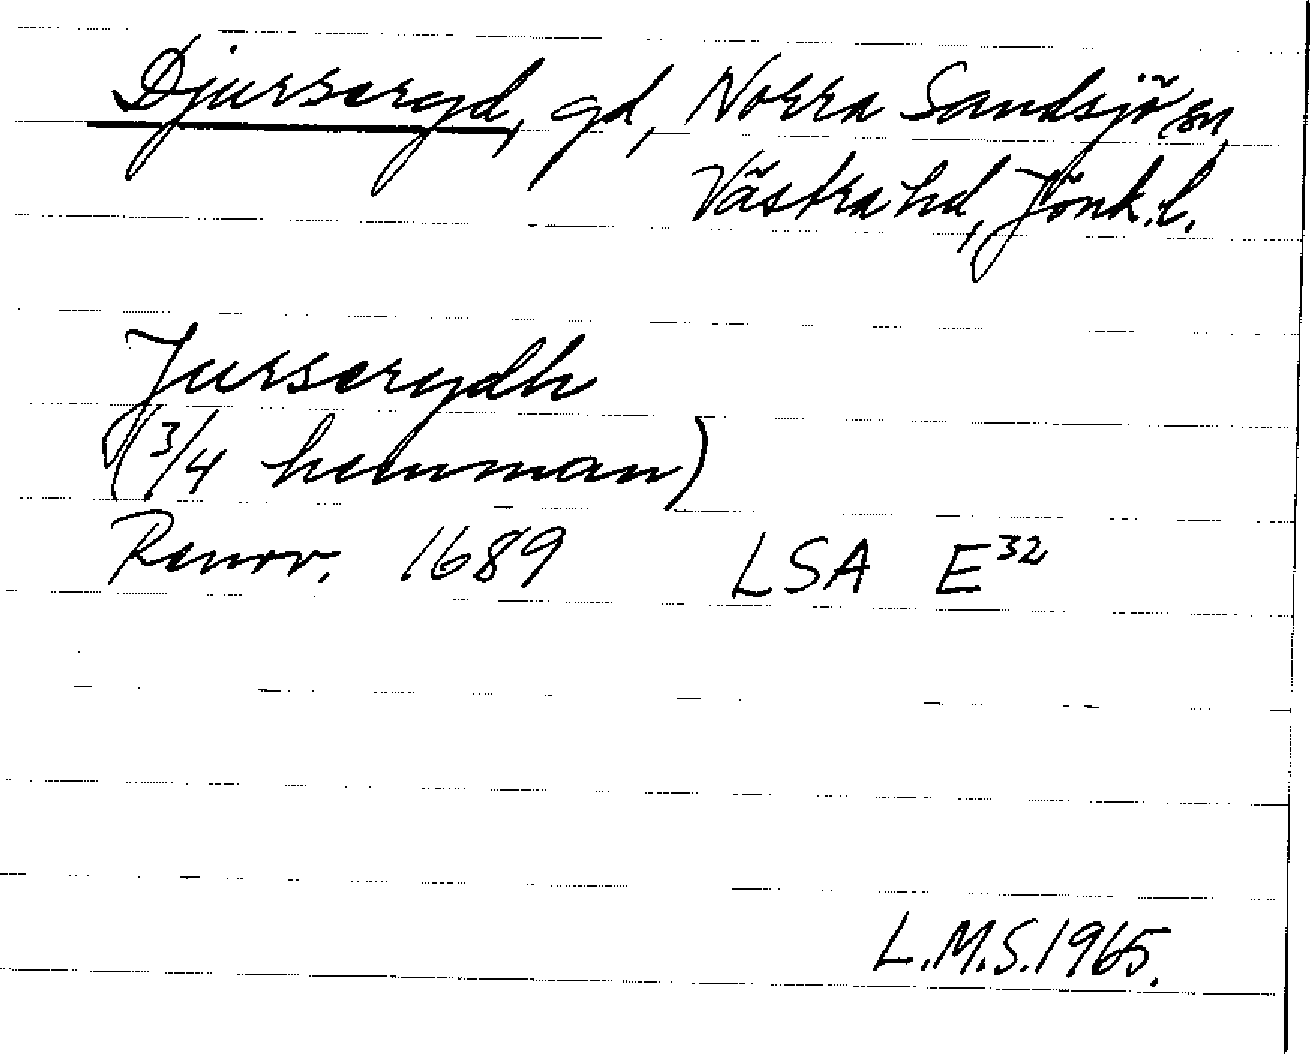 Djurseryd, gd, Norra Sandsjö sn,
Västra hd, Jönk.l.
Jurserydh
(3/4 hemman)
Renov. 1689 LSA E³²
L.M.S. 1965.